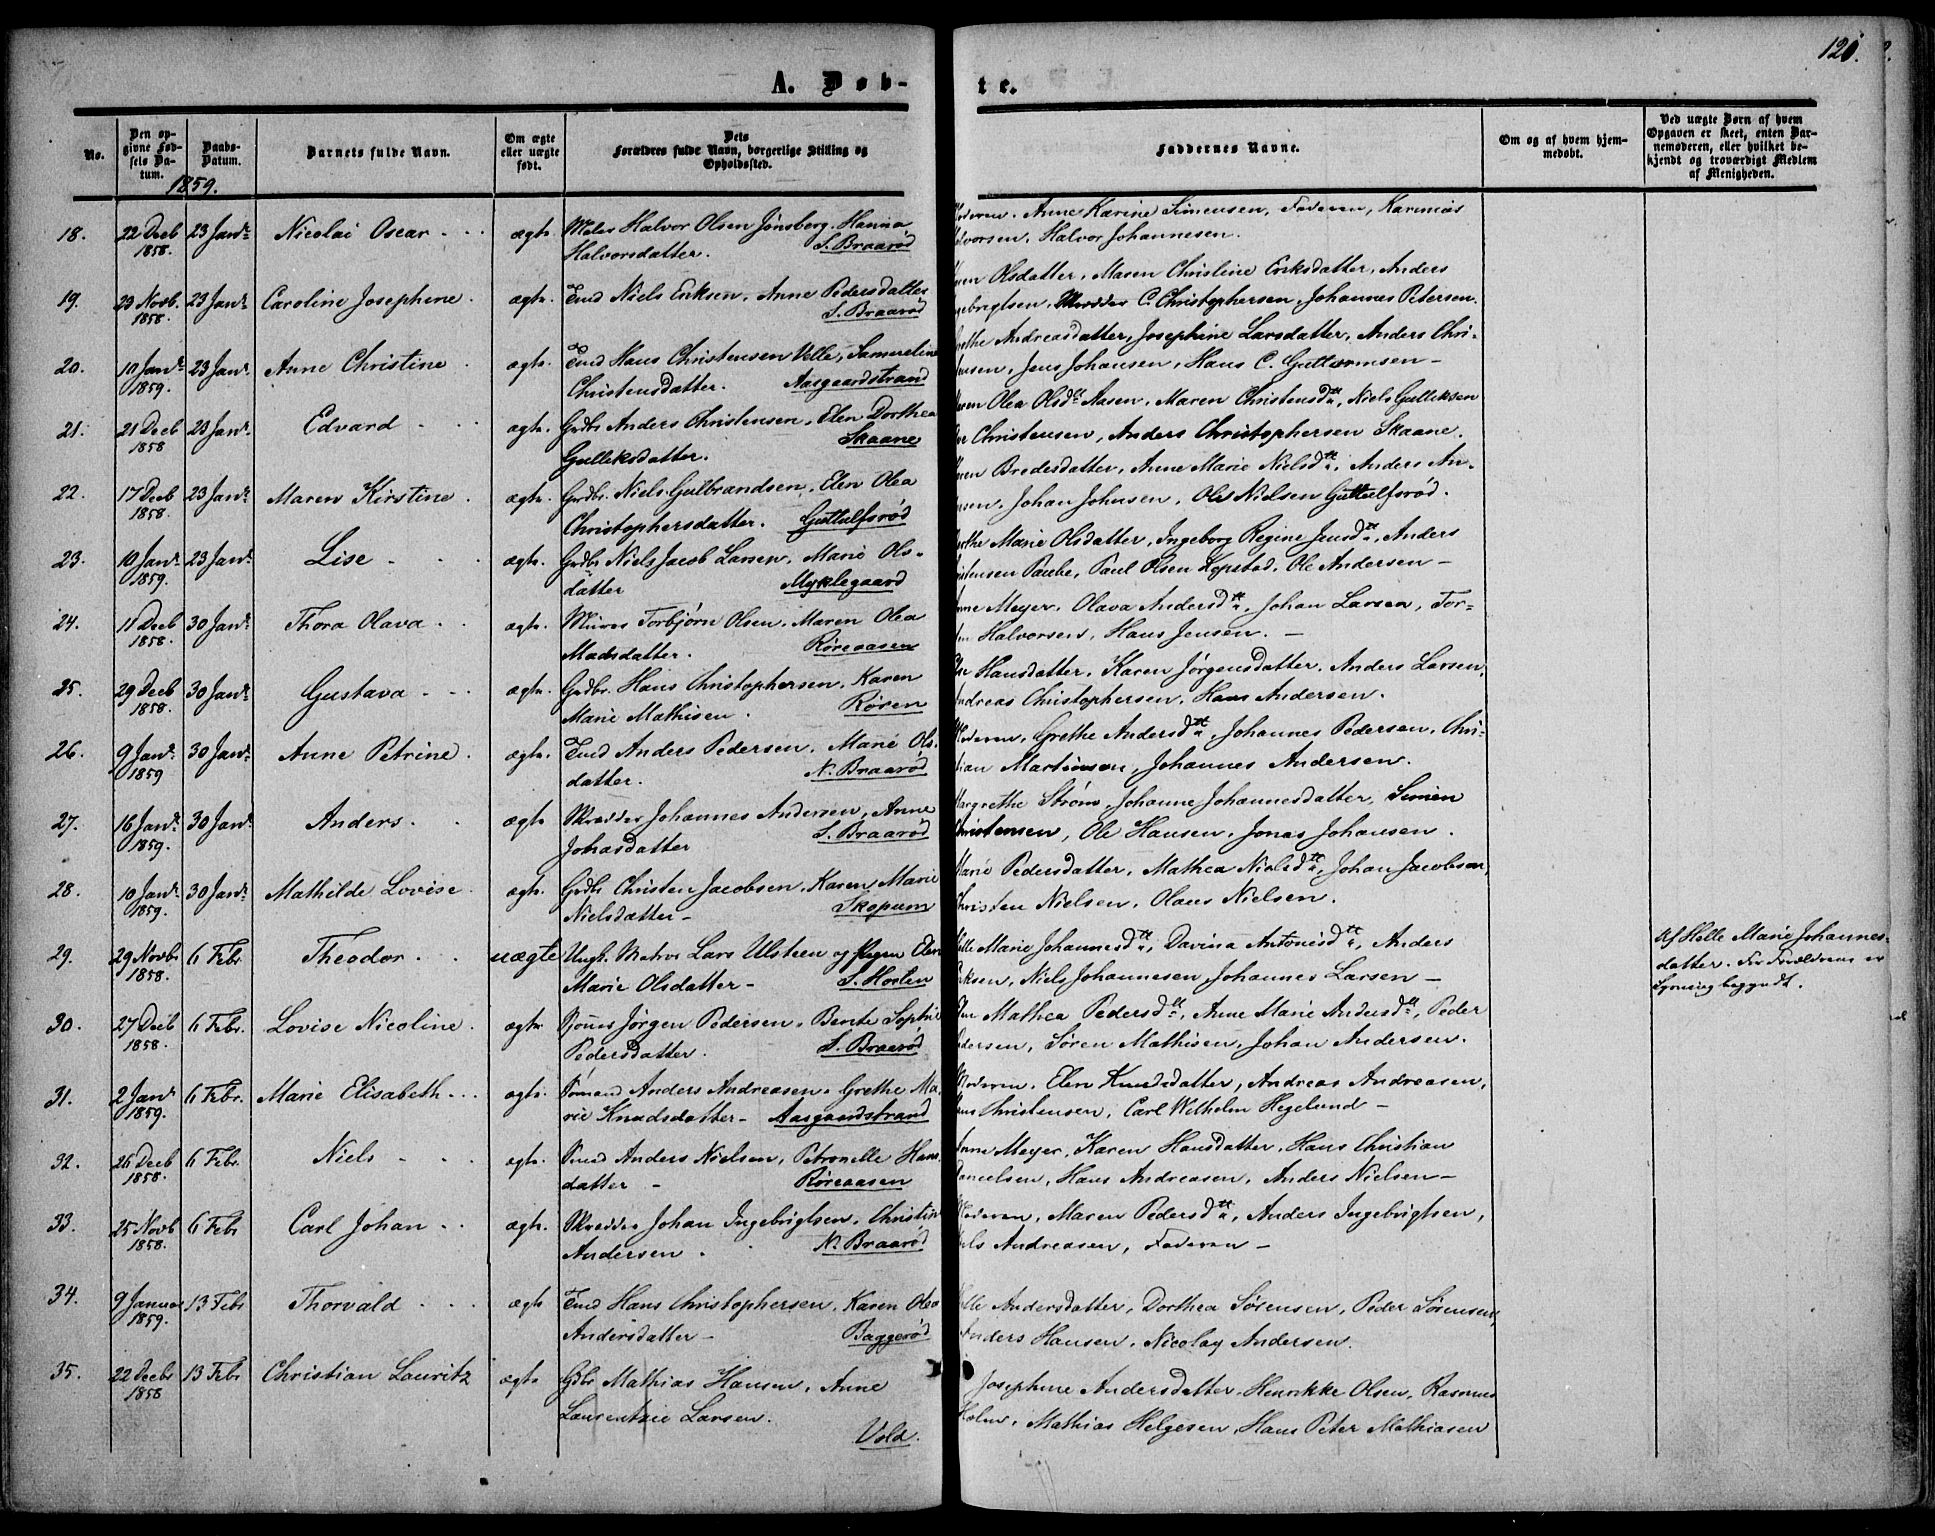 120.
A. Døb-
te.
No.
Den op-
givne Fød-
sels Da-
tum.
Daabs-
Datum.
Barnets fulde Navn.
Om ægte
eller uægte
født.
Dets
Forældres fulde Navn, borgerlige Stilling og
Opholdssted.
Faddernes Navne.
Om og af hvem hjem-
medøbt.
Ved uægte Børn af hvem
Opgaven er skeet, enten Bar-
nemoderen, eller hvilket be-
kjendt og troværdigt Medlem
af Menigheden.
1859.
18. 22 Decb 1858. 23 Janr. Nicolai Oscar ægte. Maler Halvor Olsen Jønsberg. Hanna
Halvorsdatter. S. Braarød
Anne Karine Simensen, Faderen,
Halvor Johannesen.
19. 29 Novb. 1858. 23 Janr. Caroline Josephine. ægte. Niels Eriksen, Anne Pedersdatter
S. Braarød
Olsdatter, Maren Christine Eriksdatter, Anders
C. Christophersen, Johannes Petersen.
20. 10 Janr. 1859. 23 Janr. Anne Christine ægte. Hans Christensen Velle, Samueline
Christensdatter. Aasgaardstrand
Andreasdatter, Josephine Larsdatter, Anders Chri-
Jens Johansen, Hans C. Guttormsen
21. 21 Decb 1858 23 Janr. Edvard ægte. Grdbr Anders Christensen, Elen Dorthea
Gulleksdatter. Skaane
Olea Olsdtr Aasen, Maren Christensdtr, Niels Gulleksen
Christensen, Anders Christophersen Skaane.
22. 17 Decb 1858. 23 Janr. Maren Kirstine. ægte. Grdbr. Niels Gulbrandsen, Elen Olea
Christophersdatter. Guttulfsrød
Bredesdatter, Anne Marie Nielsdtr, Anders An-
Johan Johnsen, Ole Nielsen Guttulfsrød.
23. 10 Janr. 1859. 23 Janr. Lise ægte. Grdbr Niels Jacob Larsen, Marie Ols-
datter Myklegaard
Marie Olsdatter, Ingeborg Regine Jensdtr, Anders
Paul Olsen Kopstad, Ole Andersen
24. 11 Decb 1858. 30 Janr. Thora Olava ægte. Murer Torbjørn Olsen, Maren Olea
Madsdatter. Røreaasen
Meyer, Olava Andersdtr, Johan Larsen, Tor-
Halvorsen, Hans Jensen.
25. 29 Decb 1858. 30 Janr. Gustava ægte. Grdbr. Hans Christophersen, Karen
Marie Mathisen. Røren
Hansdatter, Karen Jørgensdatter, Anders Larsen,
Christophersen, Hans Andersen.
26. 9 Janr. 1859 30 Janr. Anne Petrine. ægte. Anders Pedersen, Marie Ols-
datter. N. Braarød
Grethe Andersdtr, Johannes Pedersen, Chri-
Martinsen, Johannes Andersen.
27. 16 Janr. 1859. 30 Janr. Anders. ægte Skrædder Johannes Andersen, Anne
Johasdatter S. Braarød
Strøm, Johanne Johannesdatter, Simen
Christensen, Ole Hansen, Jonas Johansen.
28. 10 Janr. 1859. 30 Janr. Mathilde Lovise. ægte. Grdbr Christen Jacobsen, Karen Marie
Nielsdatter Skopum
Pedersdatter, Mathea Nielsdtr, Johan Jacobsen,
Nielsen, Olaus Nielsen.
29. 29 Novbr 1858. 6 Febr. Theodor. uægte Ungk. Matros Lars Ulsteen og Pigen Elen
Marie Olsdatter S. Horten
Marie Johannesdtr, Davina Antonisdtr, Anders
Niels Johannesen, Johannes Larsen
Af Helle Marie Johannes-
datter. For Forældrene er
Lysning begyndt.
30. 27 Decb 1858. 6 Febr. Lovise Nicoline. ægte. Jørgen Pedersen, Berte Sophie
Pedersdatter. S. Braarød
Mathea Pedersdtr, Anne Marie Andersdtr, Peder
Søren Mathisen, Johan Andersen.
31. 2 Janr. 1859. 6 Febr. Marie Elisabeth ægte. Sømand Anders Andreasen, Grethe Ma-
rie Knudsdatter Aasgaardstrand
Elen Knudsdatter, Andreas Andreasen,
Christensen, Carl Wilhelm Hegelund
32. 26 Decb 1858. 6 Febr. Niels ægte. Anders Nielsen, Petronelle Hans-
datter Røreaasen
Meyer, Karen Hansdatter, Hans Christian
Hans Andreasen, Anders Nielsen
33. 25 Novb 1858. 6 Febr Carl Johan ægte. Skrædder Johan Ingebrigtsen, Christine
Andersen. N. Braarød
Maren Pedersdtr, Anders Ingebrigtsen,
Andreasen, Faderen
34. 9 Januar 1859. 13 Febr Thorvald ægte Hans Christophersen, Karen Olea
Andersdatter Baggerød
Andersdatter, Dorthea Sørensen, Peder Sørensen,
Hansen, Nicolay Andersen.
35. 22 Decbr 1858 13 Febr Christian Lauritz ægte Gdbr Mathias Hansen, Anne
Laurentzie Larsen. Vold.
Josephine Andersdatter, Henrikke Olsen, Rasmus
Holm, Mathias Helgesen, Hans Peter Mathiasen